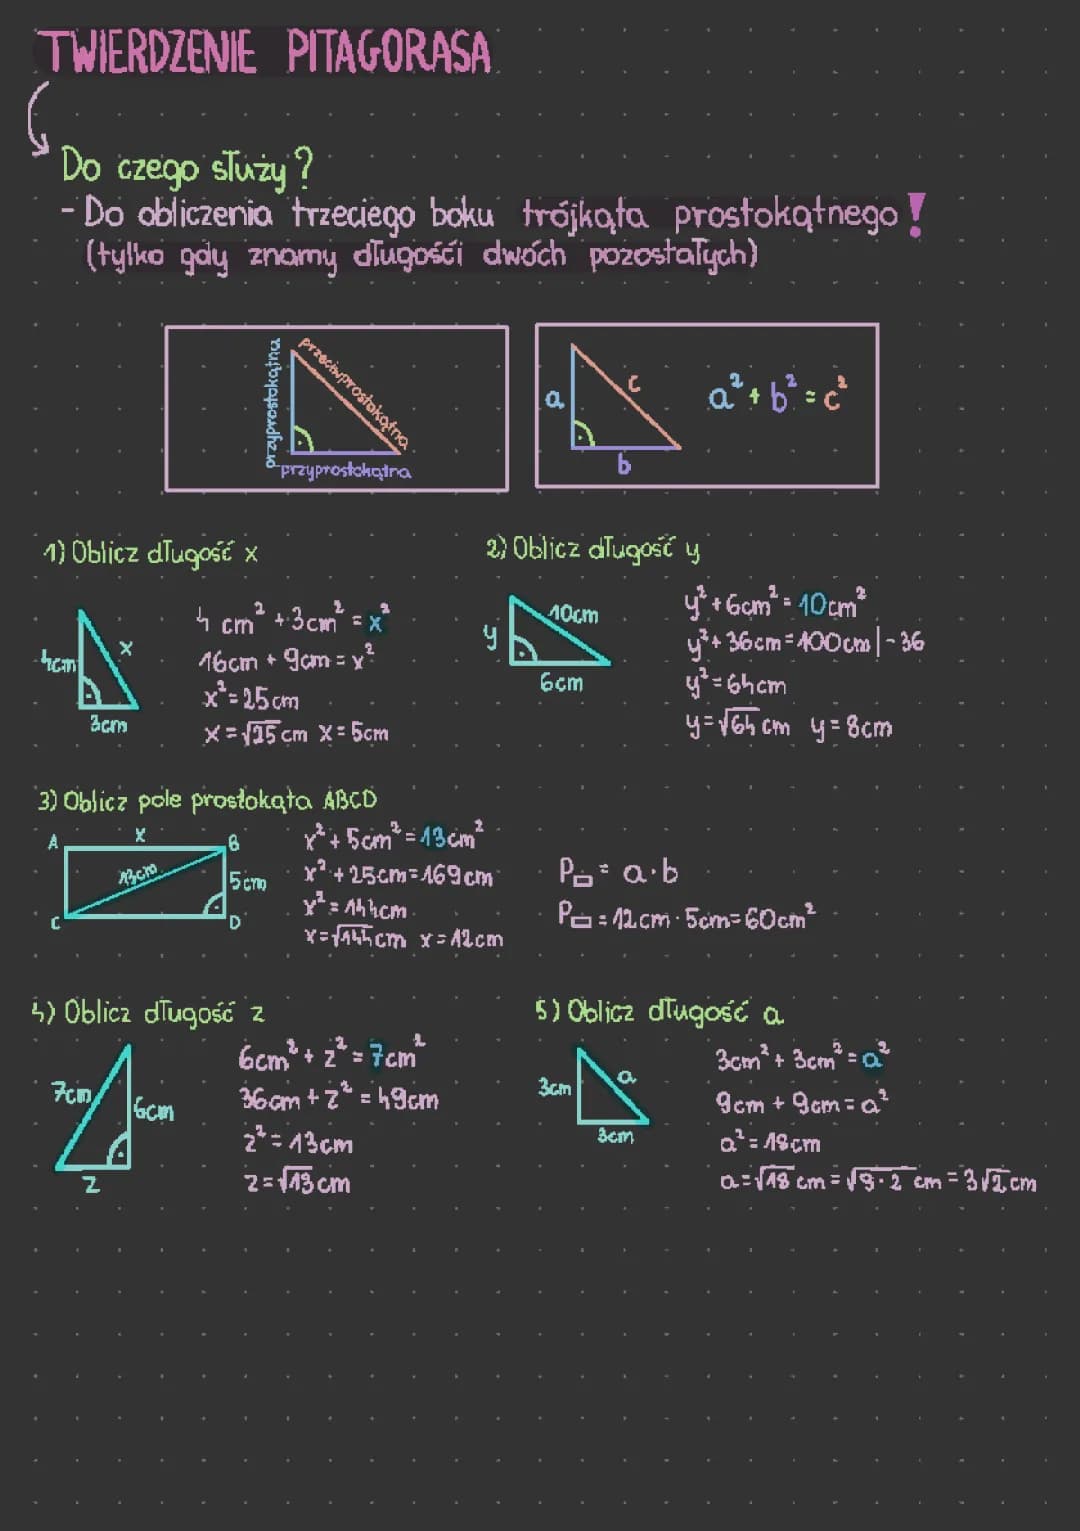 TWIERDZENIE PITAGORASA
Do czego służy?
- Do obliczenia trzeciego boku trójkąta prostokątnego!
(tylko gdy znamy długośći dwóch pozostałych)
przyprostokątna
przeciwprostokątna
przyprostokątna
a
c
b
a² + b² = c²
1) Oblicz długość x
4cm
x
3cm
4 cm² + 3cm² = x²
16cm + 9cm = x²
x² = 25cm
x = √25 cm x = 5cm
2) Oblicz długość y
y
10cm
6cm
y² + 6cm² = 10cm²
y² + 36cm = 100cm | - 36
y² = 64cm
y = √64 cm y = 8cm
3) Oblicz pole prostokąta ABCD
A
x
B
13cm
5cm
C
D
x² + 5cm² = 13cm²
x² + 25cm = 169cm
x² = 144cm
x = √144 cm x = 12cm
P▭ = a · b
P▭ = 12cm · 5cm = 60cm²
4) Oblicz długość z
7cm
6cm
z
6cm² + z² = 7cm²
36cm + z² = 49cm
z² = 13cm
z = √13 cm
5) Oblicz długość a
3cm
a
3cm
3cm² + 3cm² = a²
9cm + 9cm = a²
a² = 18cm
a = √18 cm = √9·2 cm = 3√2 cm